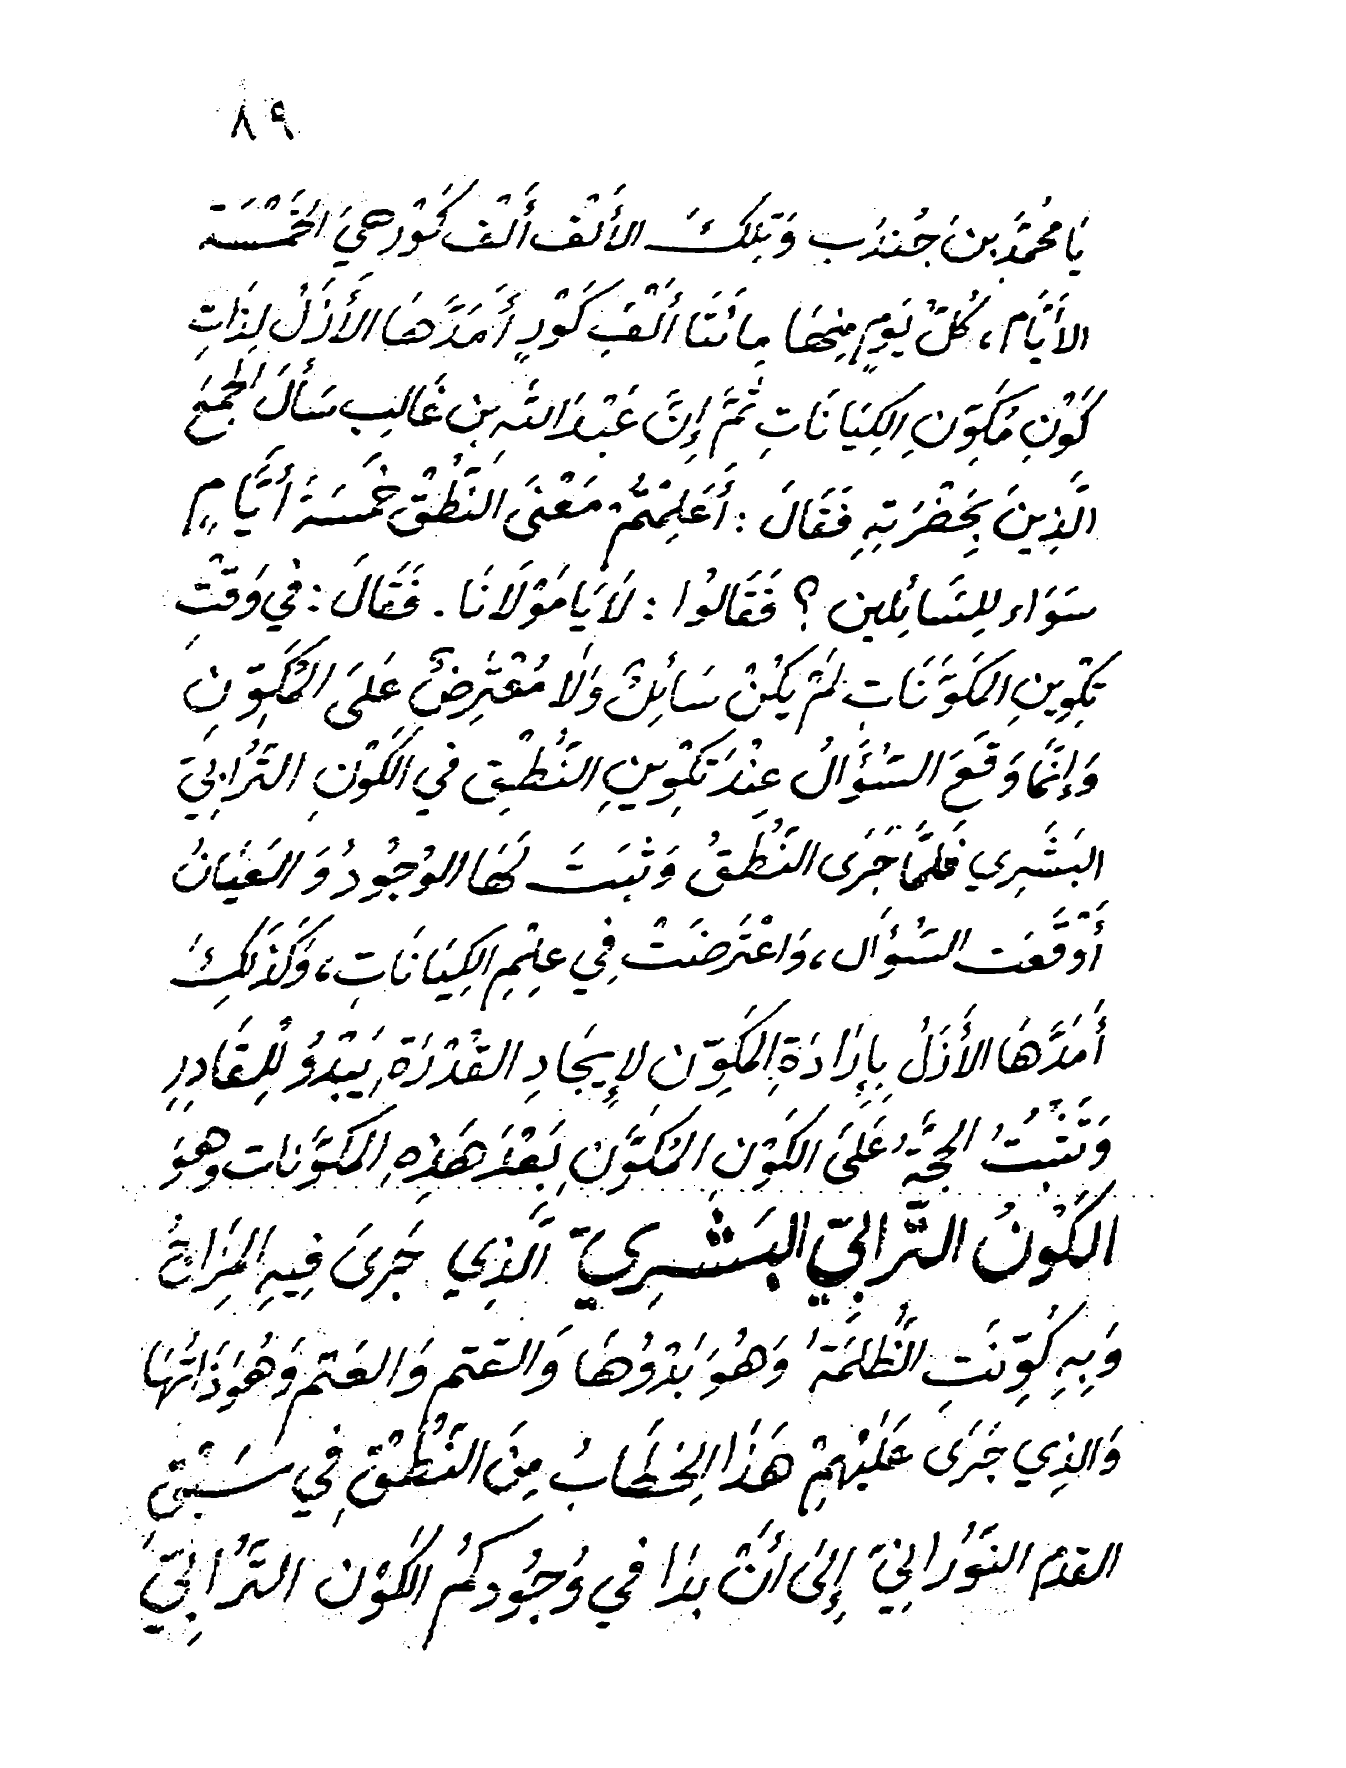 ٨٩
يَا مُحَمَّدُ بنَ جُندُب وَتِلكَ الأَلْف أَلْف كَوْر هِيَ الخَمْسَة
الأَيَّام، كُلُّ يَومٍ مِنهَا مِائَتَا أَلْفِ كَوْرٍ أَمَدَّهَا الأَزَلُ لِذَاتِ
كَوْنِ مُكَوِّنِ الكِيَانَاتِ ثُمَّ إِنَّ عَبْدَ اللَّهِ بنِ غَالِب سَأَلَ الجَمعَ
الَّذِينَ بِحَضْرَتِهِ فَقَالَ : أَعَلِمْتُمْ مَعْنَى النُّطْقِ خَمْسَةَ أَيَّامٍ
سَوَاء لِلسَّائِلين ؟ فَقَالُوا : لَا يَا مَوْلَانَا . فَقَالَ : في وَقْتِ
تَكْوِينِ المكَوَّنَاتِ لَمْ يَكُنْ سَائِلٌ وَلَا مُعْتَرِضٌ عَلَى المُكَوِّنِ
وَإِنَّمَا وَقَعَ السُّؤَالُ عِنْدَ تَكْوِينِ النُّطْقِ في الكَوْنِ التُّرَابيَ
البَشَرِي فَلَمَّا جَرَى النُّطْقُ وَثَبَتَ لَهَا الوُجُودُ وَالعَيَانُ
أَوْقَعَت السُّؤَال، وَاعْتَرَضَتْ فِي عِلْمِ الكِيَانَاتِ، وَكَذَلِكَ
أَمَدَّهَا الأَزَلُ بِإِرَادَةِ المكَوِّن لإِيجَادِ القُدْرَةِ يَبْدُو لِلقَادِرِ
وَتَثْبُتُ الحُجَّةُ عَلَى الكَوْنِ المُكَوَّنِ بَعْدَ هَذِهِ المكَوَّنات وهوَ
الكَوْنُ التُّرَابيّ البَشَرِيّ الَّذِي جَرَى فِيهِ المِزَاجُ
وَبِهِ كُوِّنَتِ الظُّلمَةُ وَهُوَ بَدْوُهَا وَالعَتم وَالعَتم وَهُوَ ذَاتُهَا
وَالذِي جَرَى عَلَيْهِمْ هَذَا الخِطَابُ مِنَ النُّطْقِ فِي سَبْقِ
القدم النَّوُرَانِيّ إِلَى أَنْ بدَا في وُجُودِكُم الكَوْن التُّرَابيّ